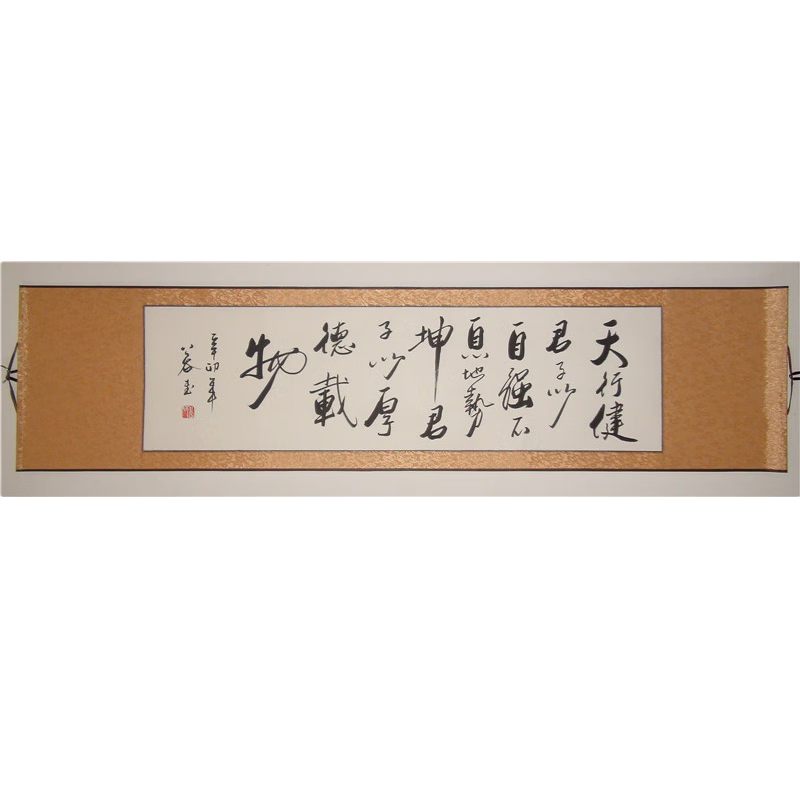 天行健
君子以
自强不
息地勢
坤君
子以厚
德載
物
辛卯年